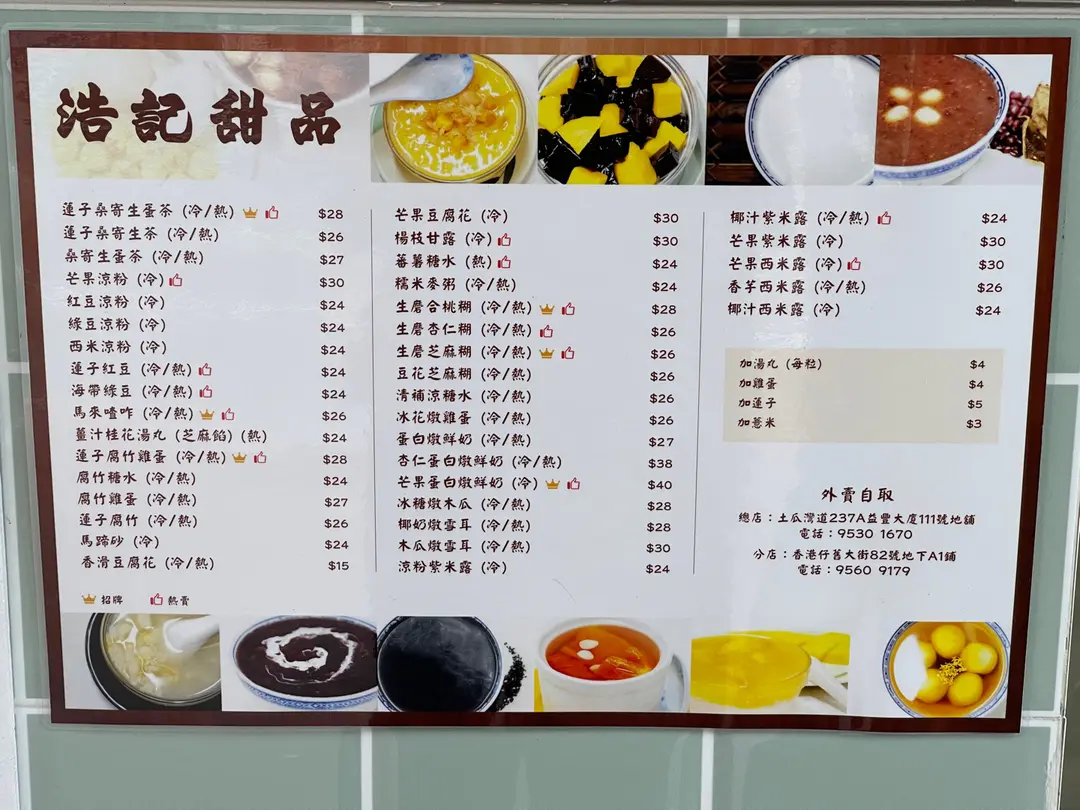 浩記甜品
蓮子桑寄生蛋茶 (冷/熱) $28
蓮子桑寄生茶 (冷/熱) $26
桑寄生蛋茶 (冷/熱) $27
芒果涼粉 (冷) $30
紅豆涼粉 (冷) $24
綠豆涼粉 (冷) $24
西米涼粉 (冷) $24
蓮子紅豆 (冷/熱) $24
海帶綠豆 (冷/熱) $24
馬來喳咋 (冷/熱) $26
薑汁桂花湯丸 (芝麻餡) (熱) $24
蓮子腐竹雞蛋 (冷/熱) $28
腐竹糖水 (冷/熱) $24
腐竹雞蛋 (冷/熱) $27
蓮子腐竹 (冷/熱) $26
馬蹄砂 (冷) $24
香滑豆腐花 (冷/熱) $15
招牌 熱賣
芒果豆腐花 (冷) $30
楊枝甘露 (冷) $30
蕃薯糖水 (熱) $24
糯米麥粥 (冷/熱) $24
生磨合桃糊 (冷/熱) $28
生磨杏仁糊 (冷/熱) $26
生磨芝麻糊 (冷/熱) $26
豆花芝麻糊 (冷/熱) $26
清補涼糖水 (冷/熱) $26
冰花燉雞蛋 (冷/熱) $26
蛋白燉鮮奶 (冷/熱) $27
杏仁蛋白燉鮮奶 (冷/熱) $38
芒果蛋白燉鮮奶 (冷) $40
冰糖燉木瓜 (冷/熱) $28
椰奶燉雪耳 (冷/熱) $28
木瓜燉雪耳 (冷/熱) $30
涼粉紫米露 (冷) $24
椰汁紫米露 (冷/熱) $24
芒果紫米露 (冷) $30
芒果西米露 (冷) $30
香芋西米露 (冷/熱) $26
椰汁西米露 (冷) $24
加湯丸 (每粒) $4
加雞蛋 $4
加蓮子 $5
加薏米 $3
外賣自取
總店：土瓜灣道237A益豐大廈111號地舖
電話：9530 1670
分店：香港仔舊大街82號地下A1鋪
電話：9560 9179